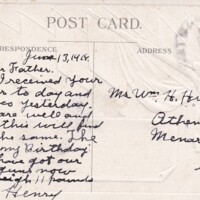 POST CARD.
RRESPONDENCE
ADDRESS
June 13, 14
r Father.
I received your
r to day and
es yesterday.
are well and
this will find
he same. The
my Birthday
have got our
now
eigh 11 pounds
Henry
Mr Wm. H. He
Athen
Menar